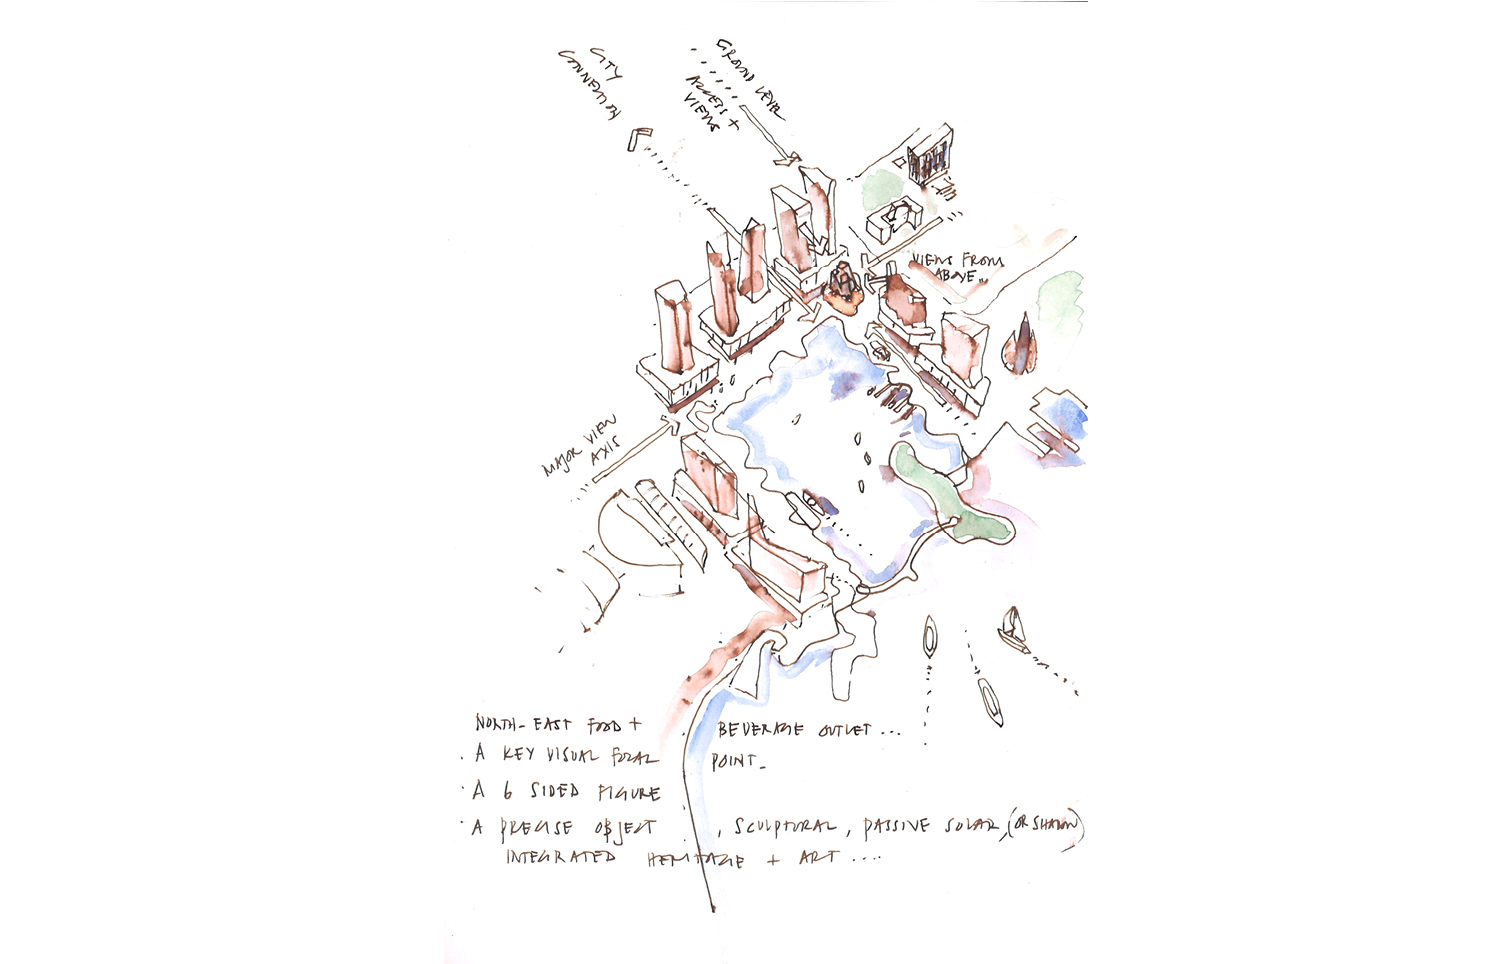 CITY
CONNECTION
GROUND LEVEL
ACCESS +
VIEWS
VIEWS FROM
ABOVE..
MAJOR VIEW
AXIS
NORTH-EAST FOOD + BEVERAGE OUTLET...
. A KEY VISUAL FOCAL POINT_
. A 6 SIDED FIGURE
. A PRECISE OBJECT, SCULPTURAL, PASSIVE SOLAR,
INTEGRATED HERITAGE + ART ....